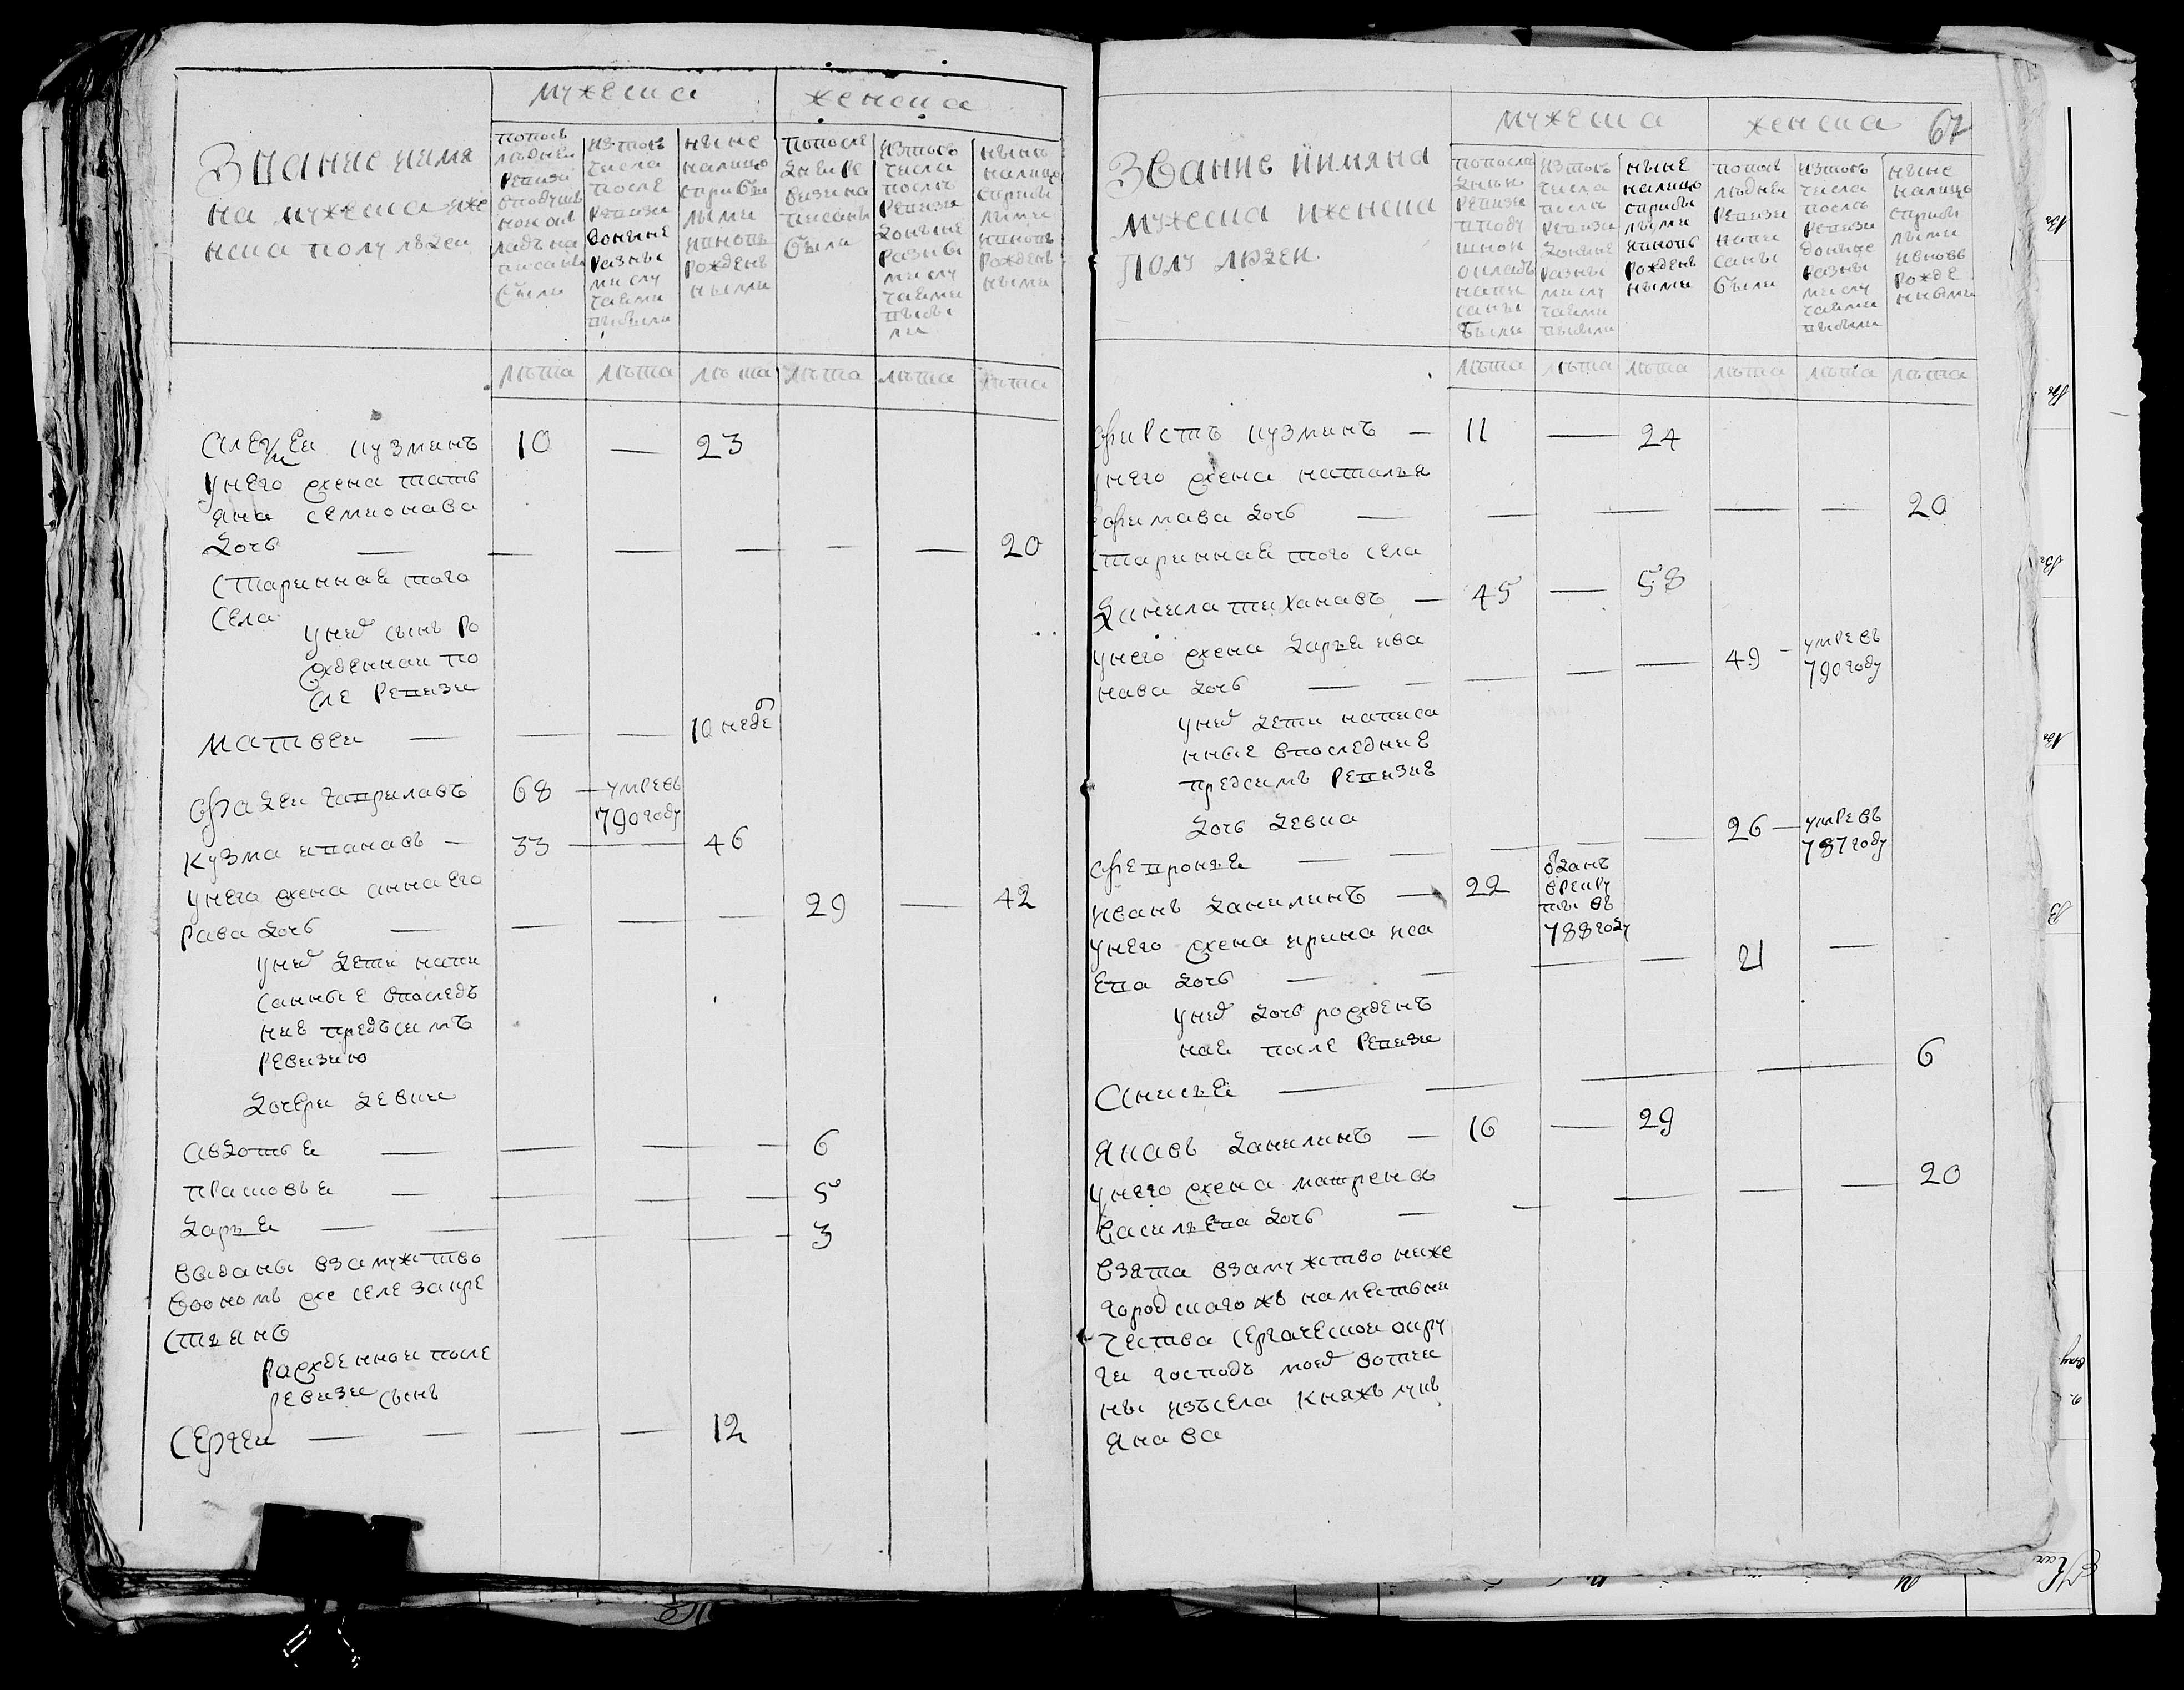 мужеска
женска
Звание иимя
на мужеска иже
нска полу людеи
попось
льднеи
ревизи
вподушь
ном ок
ладь на
писаны
были
изтовь
числа
после
ревизи
доныне
разны
ми слу
чаями
выбыли
ныне
налицо
сприбы
лыми
ивновь
рожден
ными
попосле
днеи ре
визи на
писаны
были
изтовь
числа
после
ревизи
доныне
разны
ми слу
чаями
выбы
ли
ныне
налицо
сприбы
лыми
ивновь
рожден
ными
льта льта льта льта льта льта
Алексеи кузминъ 10 — 23
унего жена тать
яна семионава
дочь — — — — — — 20
Стариннае того
Села
унеи сынъ ро
жденнаи по
сле ревизи
матвеи — — — 10 недѣ
Фадеи гаврилавъ 68 — умревъ
790 году
Кузма ивановъ — 33 — 46
унего жена анна Его
рава дочь — — — — 29 — 42
унеи дети напи
санные впоследъ
нию предъсимъ
ревизию
Дочери девки
Авдотья — — — — 6
прасковья — — — — 5
дарья — — — — 3
выданы взамужство
водномъ же селе закре
стьянъ
Рожденнои после
ревизи сынъ
Сергеи — — — — 12
67
мужеска
женска
Звание иимяна
мужеска иженска
Полу людеи.
попосле
днеи
ревизи
вподу
шном
окладъ
напи
саны
были
изтовь
числа
после
ревизи
доныне
разны
ми слу
чаями
выбыли
ныне
налицо
сприбы
лыми
ивновь
рожденъ
ными
попось
льднеи
ревизи
напи
саны
были
изтовь
числа
после
ревизи
доныне
разны
ми слу
чаями
выбыли
ныне
налицо
сприбы
лыми
ивновь
рожде
нными
льта льта льта льта льта льта
Фирстъ кузминъ — 11 — 24
унего жена наталья
Ефимава дочь — — — — — 20
Стариннае того села
Данила тихановъ — 45 — 58
унего жена дарья ива
нава дочь — — — — — 49 — умревъ
790 году
унеи дети написа
нные впоследние
предсимъ ревизие
дочь девка
Февронья — — — — 26 — умревъ
787 году
Иванъ данилинъ — 22 оданъ
врекру
ты въ
788 году
унего жена ирина иса
Ева дочь — — — — 21 —
унеи дочь рожденъ
нае после ревизи
Анисья — — — — — 6
Яковъ данилинъ — 16 — 29
унего жена матрена
Васильева дочь — — — — — 20
Взята взамужство ниже
городскаго жъ наместьни
чества Сергаческои окру
ги господъ моеи вотчи
ны изъсела Княжъ лук
янава